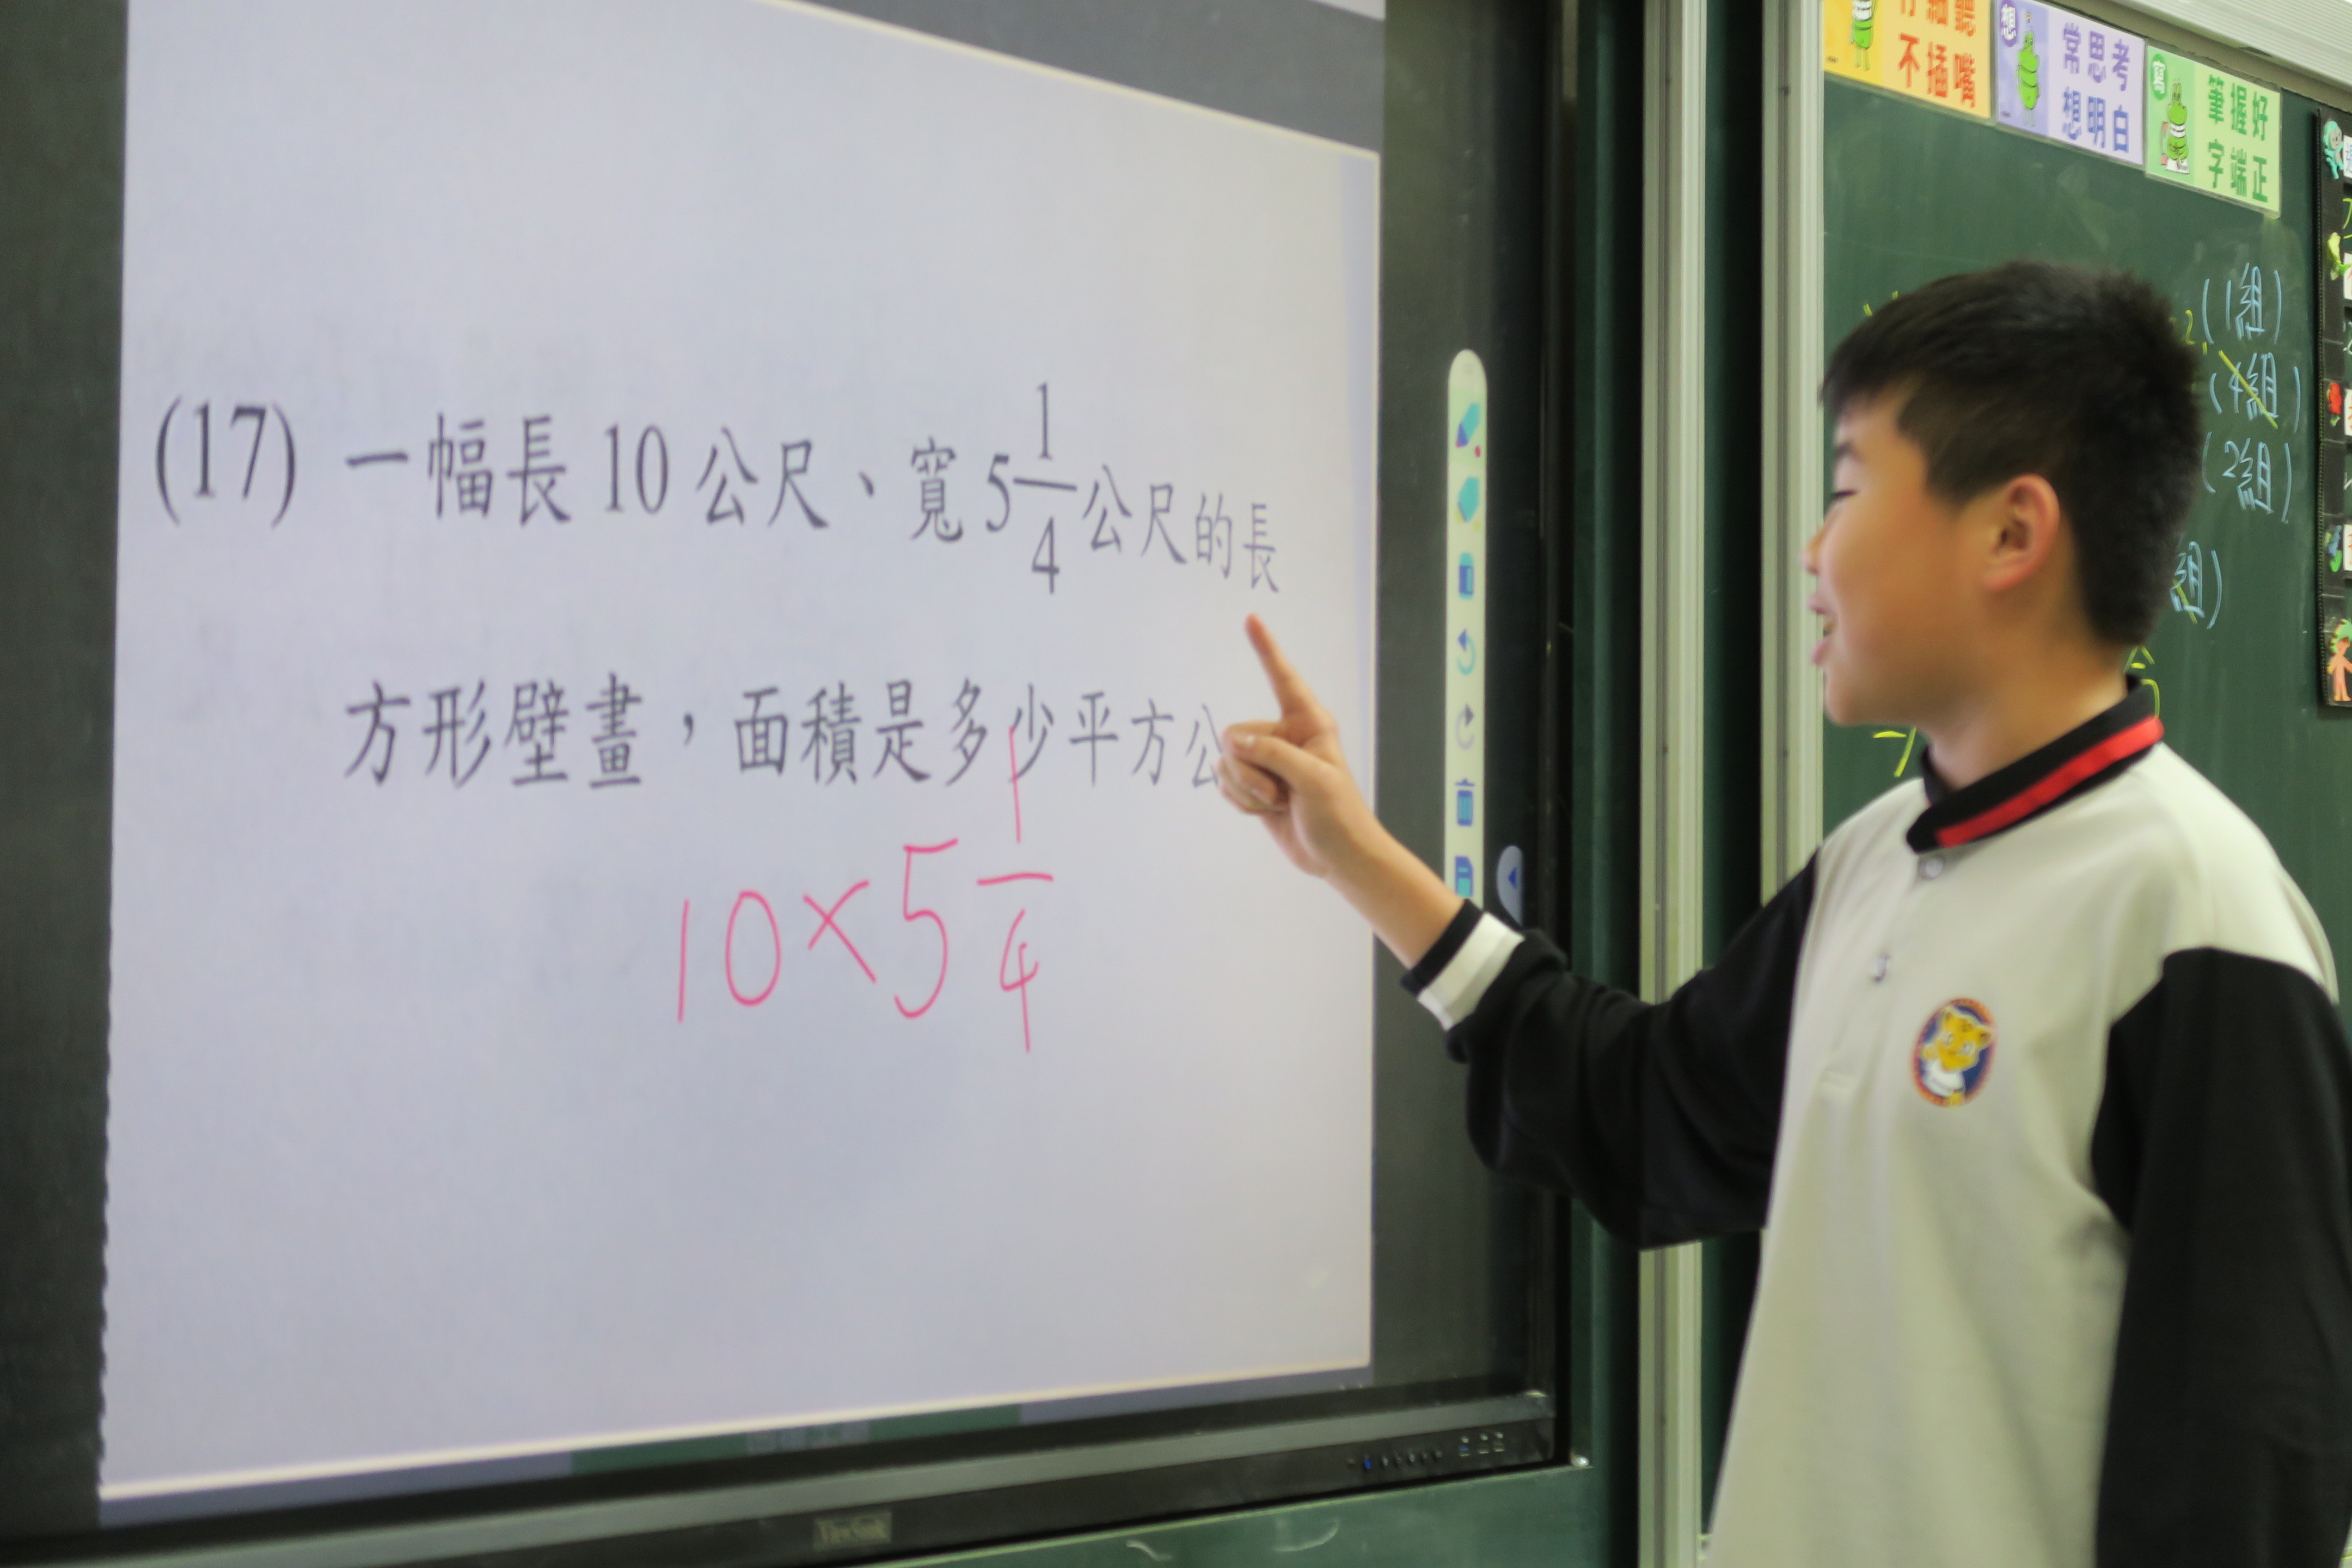 (17) 一幅長 10 公尺、寬 5 1/4 公尺的長
方形壁畫，面積是多少平方公
10×5 1/4
不插嘴
想
常思考
想明白
寫
筆握好
字端正
(1組)
(4組)
(2組)
組)
ViewSonic